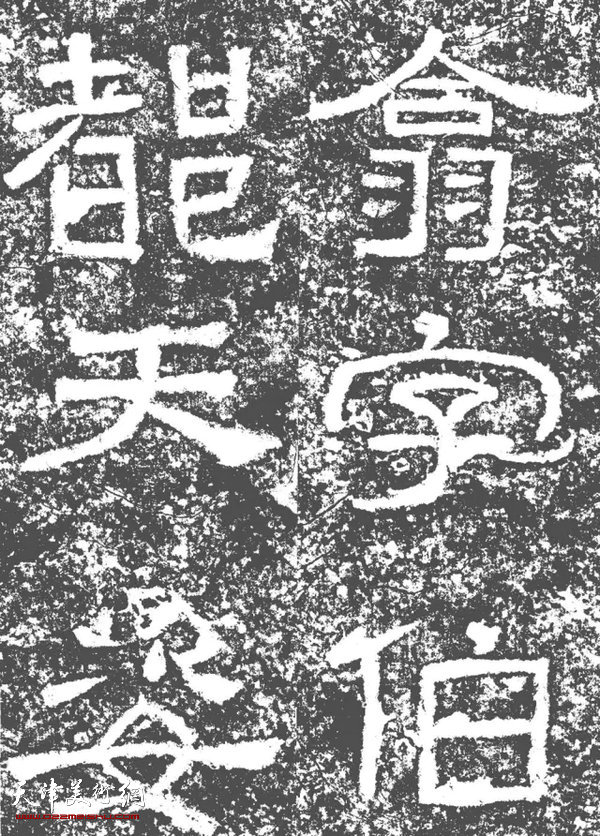 翕字伯
都天姿
天津美術網
www.022meishu.com